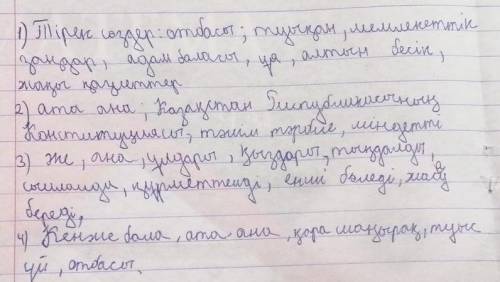 1) Тірек сөздер: отбасы; туысқан, мемлекеттік
заңдар, адам баласы, ұя, алтын бесік,
жақсы қасиеттер
2) ата ана, Қазақстан Республикасының
Конституциясы, тәлім тәрбие, міндетті
3) же, ана, ұлдары, қыздары, тыңдалды,
сыйлайды, құрметтейді, енші бөледі, жасау
береді,
4) Кенже бала, ата ана, қара шаңырақ, туыс
үй, отбасы.